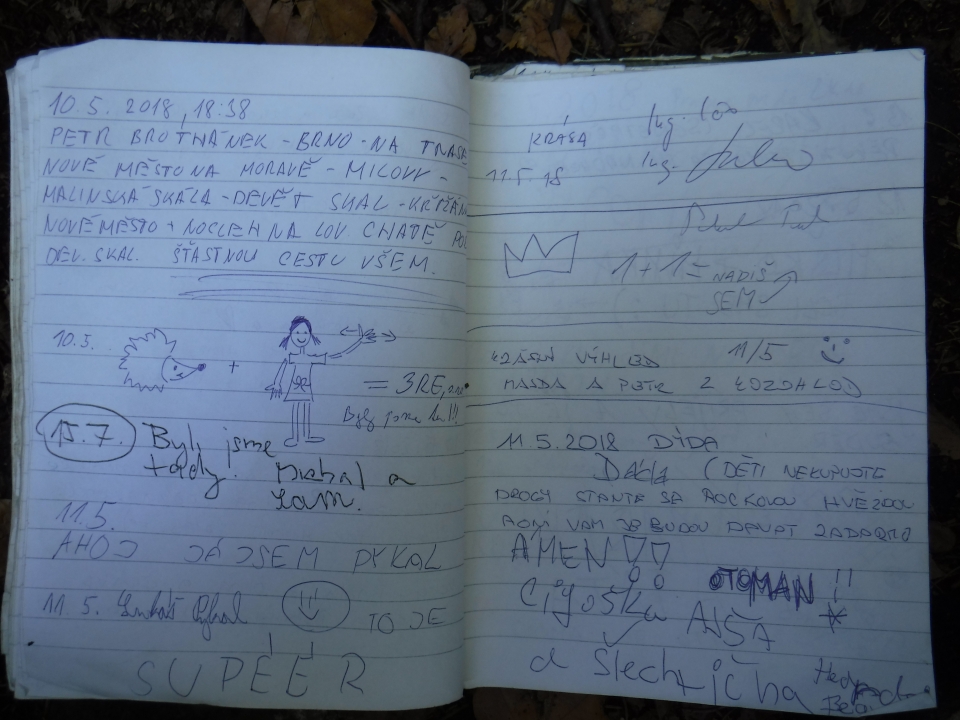 10.5. 2018, 18:38
PETR BROTHÁNEK - BRNO - NA TRASE
NOVÉ MĚSTO NA MORAVĚ - MILOVY -
MALINSKÁ SKÁLA - DEVĚT SKAL - KŘIŽÁN
NOVÉ MĚSTO + NOCLEH NA LOV CHATĚ POD
DEV. SKAL. ŠŤASTNOU CESTU VŠEM.
10.5.
+
= 3RE,
Byly jsme tu!!!
15.7. Byli jsme
tady. Michal a
11.5.
AHOJ JÁ JSEM PYKAL
11. 5. Lukáš Pykal TO JE
SUPÉÉR
KRÁSA Ing.
11.5. 18 Ing.
1+1= NADIŠ
SEM
KRÁSNÝ VÝHLED 11/5
MAGDA A PETR Z
11.5.2018 DÝDA
(DĚTI NEKUPUJTE
DROGY STANTE SE ROCKOVOU HVĚZDOU
A ONI VAM JE BUDOU DAVAT ZADARMO
AMEN!!
OTOMAN!!
Cigoška AJŠA
a šlechtična